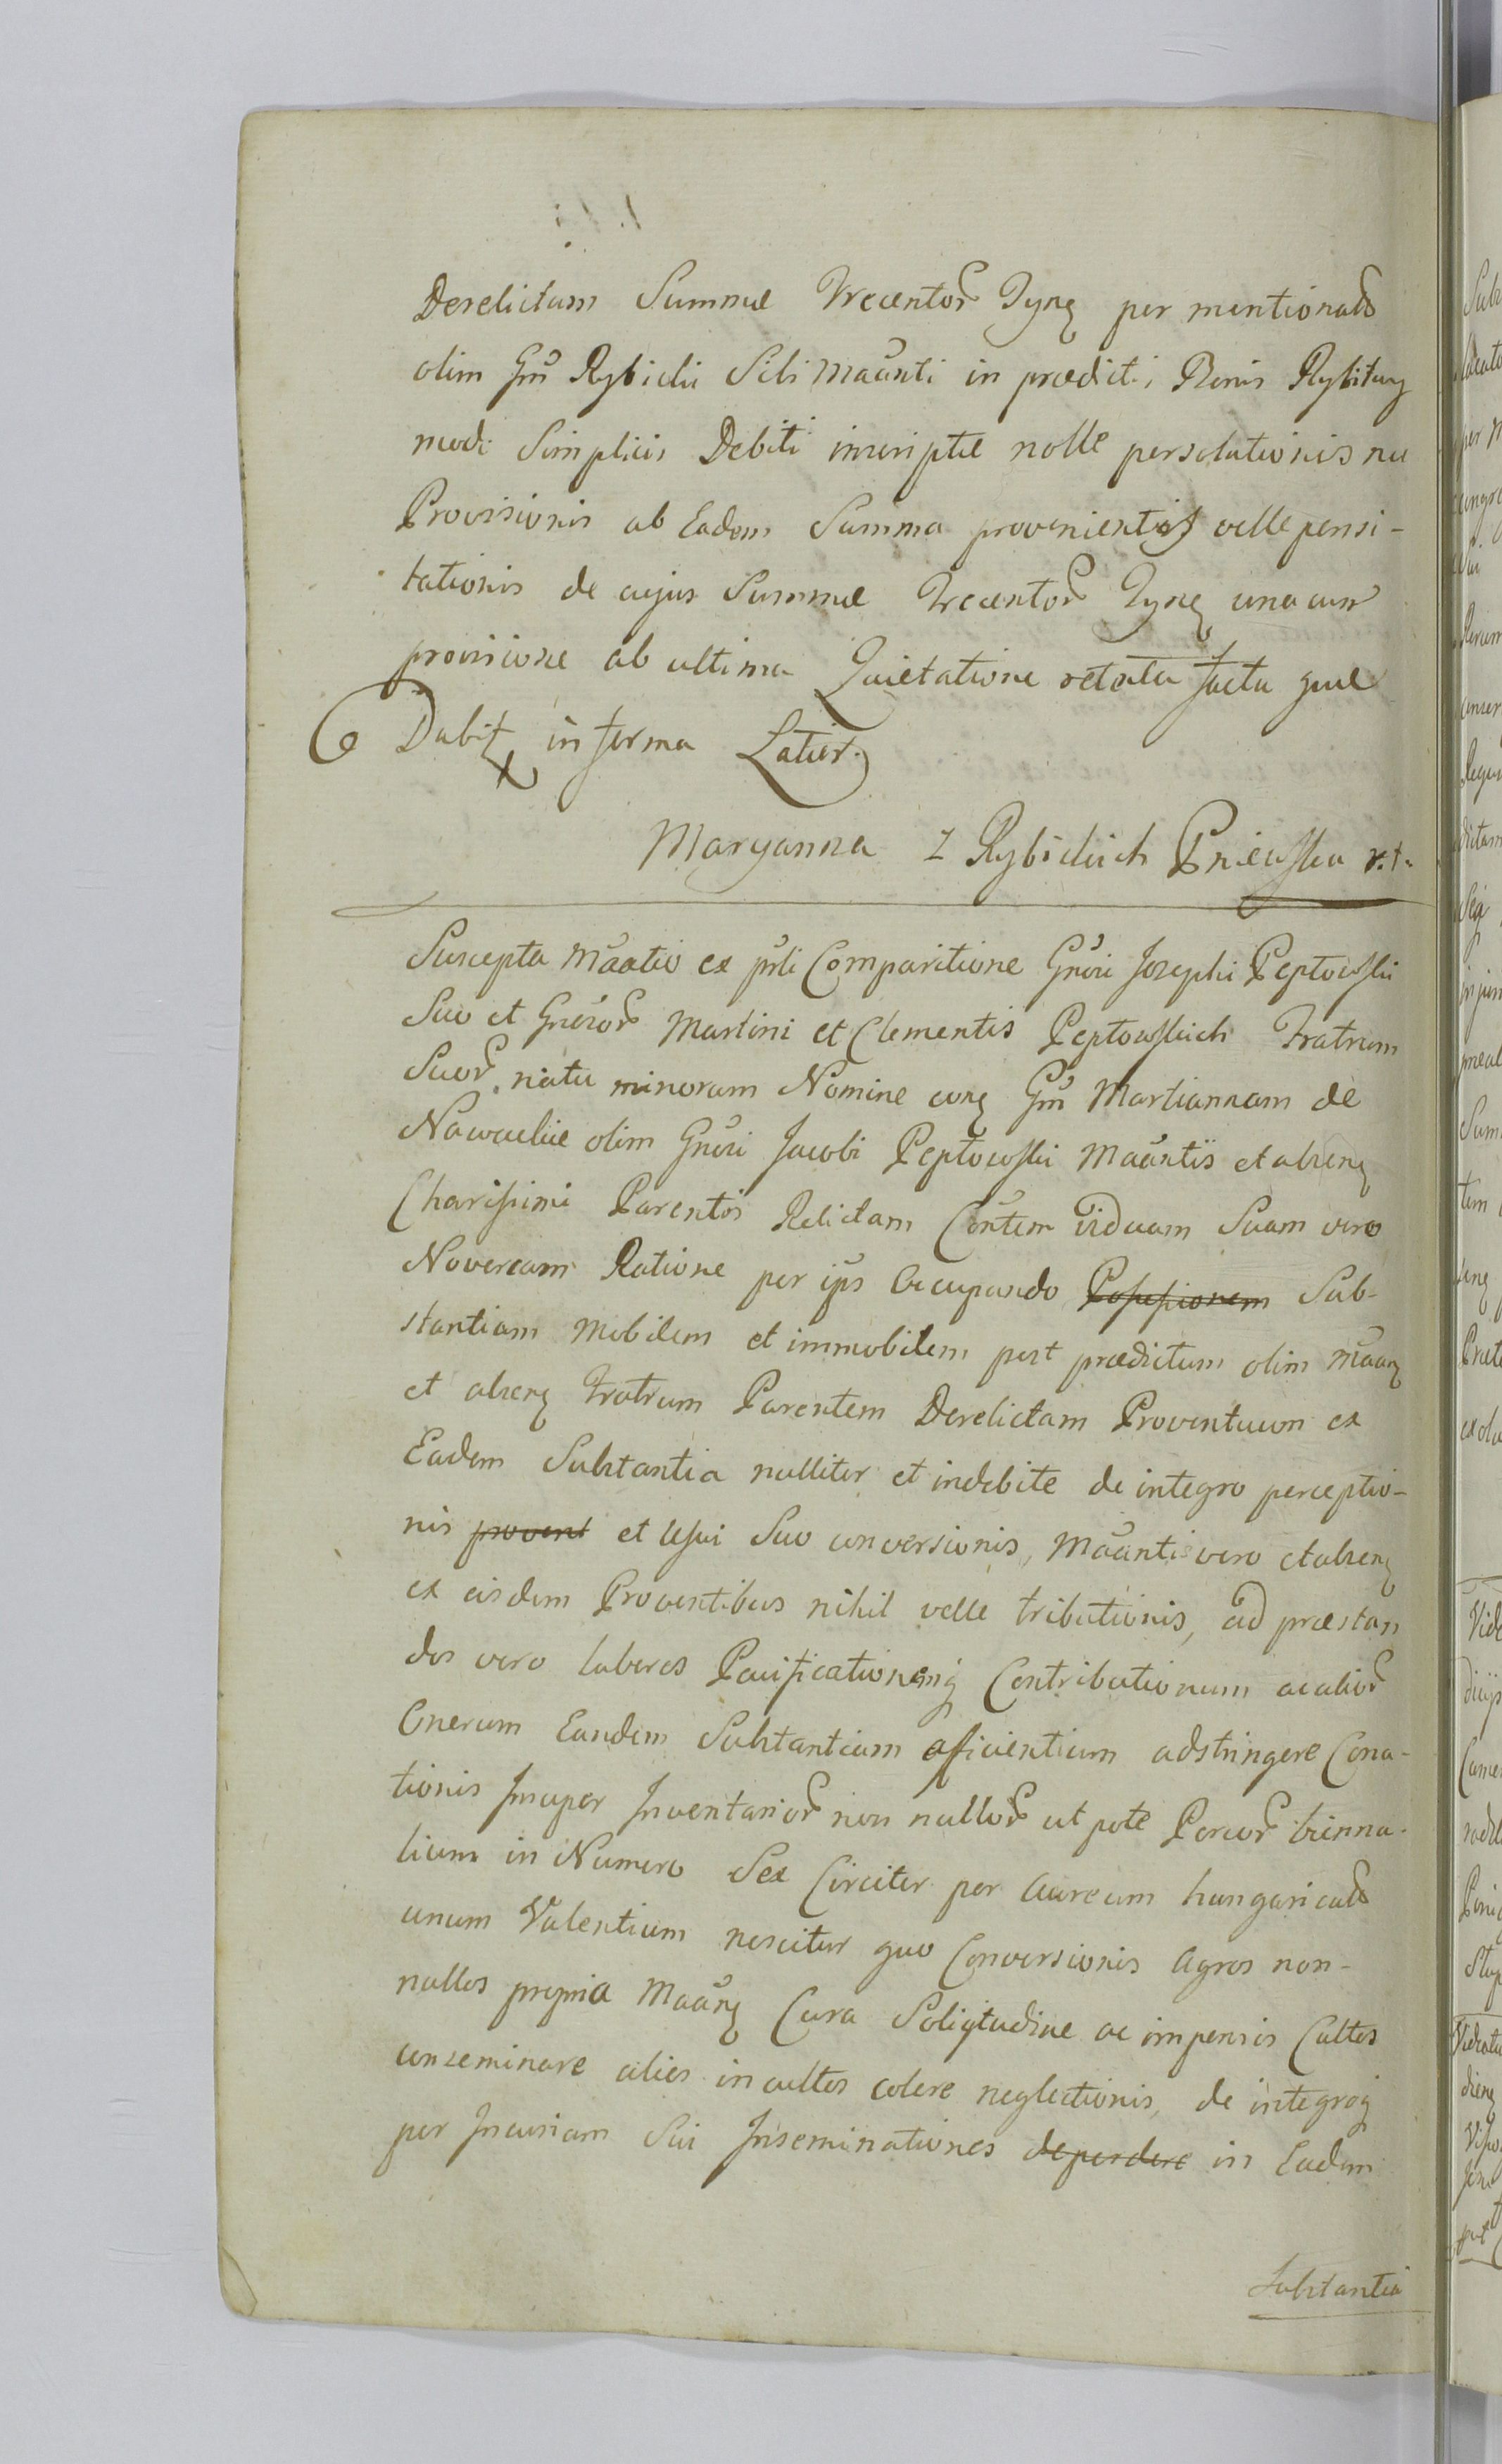 Derelictam Summæ Trecentor Tynf per mentionatū
olim Gm̃ Rybicki Sibi Maãnti in prædictis Bonis Rybitwy
modo Simplicis Debiti inscriptæ nolle persolutionis nec
Provisionis ab Eadem Summa provenientis velle pensi-
tationis de cujus Summæ Trecentor Tynf una cum
provisione ab ultima Quietatione retenta facta quæ
Dabit in forma Latior.
Maryanna z Rybickich Pniewska
Suscepta Mãatio ex pñli Comparitione Gñsi Josephi Peptowski
Suo et Gñsor Martini et Clementis Peptowskich Fratrum
Suor natu minorum Nomine conq Gm̃ Martiannam de
Nawackie olim Gñsi Jacobi Peptowski Maãntis et alioruq
Charissimi Parentis Relictam Cõntem Viduam Suam vero
Novercam Ratione per ips Occupando Possessionem Sub-
stantiam Mobilem et immobilem post prædictum olim Mãanq
et alienq Fratrum Parentem Derelictam Proventuum ex
Eadem Substantia nulliter et indebite de integro perceptio-
nis provent et Usui Suo conversionis, Maãnti vero et alienq
ex eisdem Proventibus nihil velle tributionis, ad præstan
dos vero labores Pacificationemq Contributionum ac alior
Onerum Eandem Substantiam aficientium adstringere Cona-
tionis Insuper Inventarior non nullor ut pote Porcor bienna-
lium in Numero Sex Circiter per Aureum hungaricalē
unum Valentium nescitur quo Conversionis Agros non-
nullos propria Maãnq Cura Soligtudine ac impensis Cultos
conseminare alios incultos colere neglectionis, de integroq
per Incuriam Sui Inseminationes deperdere in Eadem
Substantia